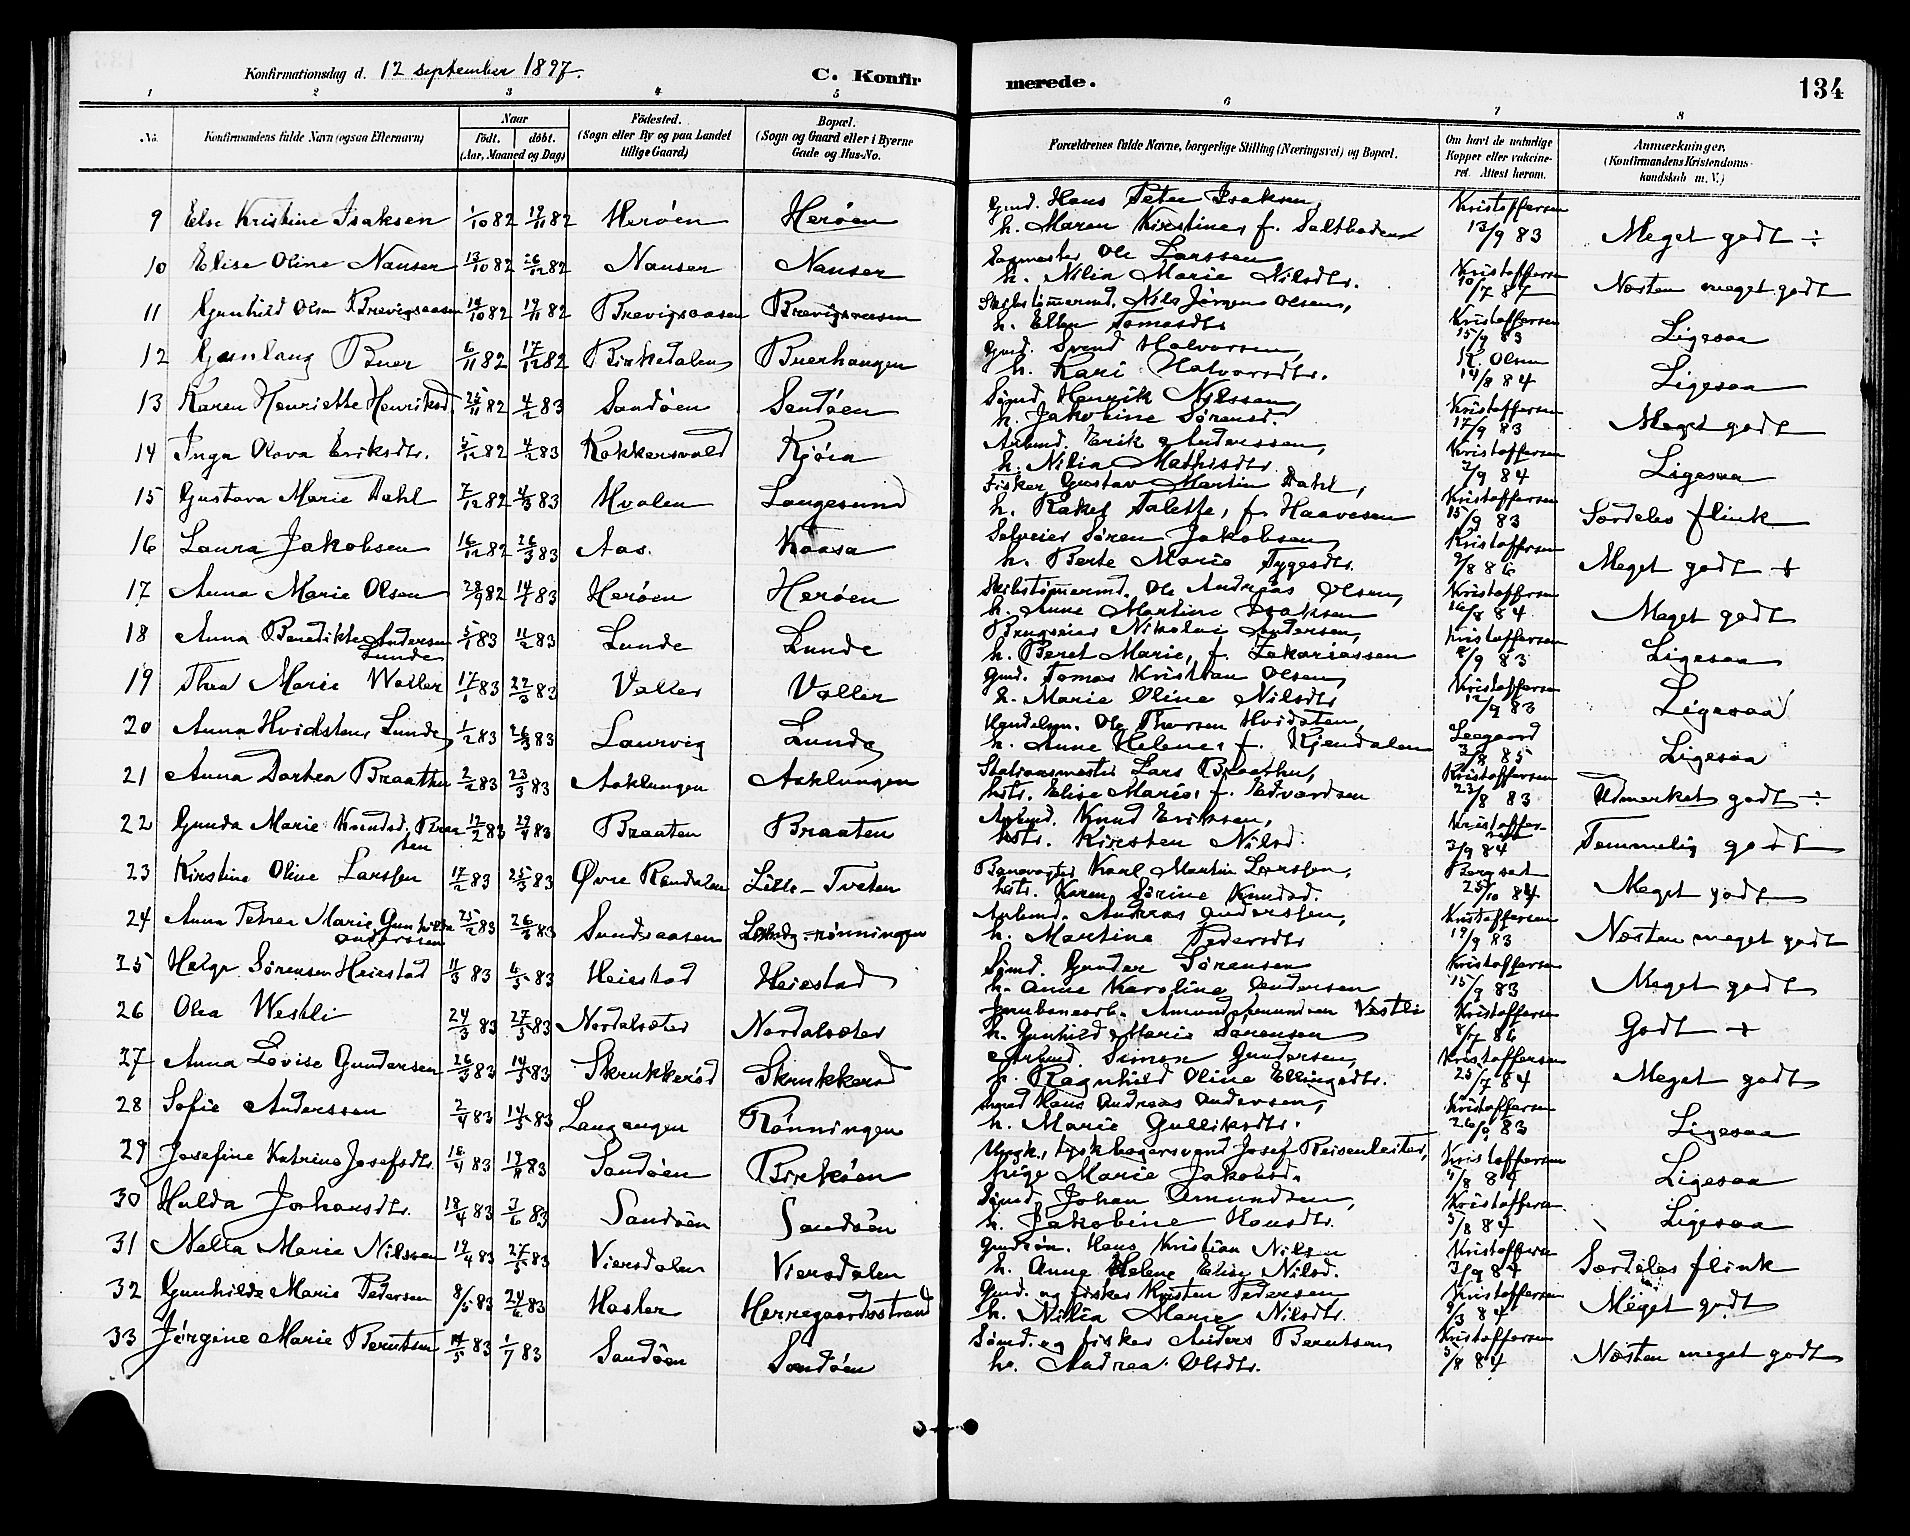 Konfirmationsdag d. 12 september 1897.
C. Konfirmerede.
134
1 2 3 4 5 6 7 8
No. Konfirmandens fulde Navn (ogsaa Efternavn) Naar Födt. döbt. (Aar, Maaned og Dag) Födested. (Sogn eller By og paa Landet tillige Gaard) Bopæl. (Sogn og Gaard eller i Byerne Gade og Hus-No. Forældrenes fulde Navne, borgerlige Stilling (Næringsvei) og Bopæl. Om havt de naturlige Kopper eller vakcineret. Attest herom. Anmærkninger. (Konfirmandens Kristendomskundskab m. V.)
9 Else Kristine Isaksen 1/10 82 19/11 82 Herøen Herøen Gmd. Hans Peter Isaksen, Kristoffersen
h. Maren Kirstine, f. Saltboden 13/9 83 Meget godt ÷
10 Elise Oline Nanser 13/10 82 26/12 82 Nanser Nanser Sagmester Ole Larssen Kristoffersen
h. Nilia Marie Nilsdtr. 10/7 87 Næsten meget godt
11 Gunhild Olsen Brevigsaasen 14/10 82 19/11 82 Brevigsaasen Brevigsaasen Skibstømmermd. Nils Jörgen Olsen, Kristoffersen
h. Ellen Tomasdtr 15/9 83 Ligesaa
12 Gunlaug Buer 6/11 82 17/12 82 Birkedalen Buerhaugen Gmd. Svend Halvorsen, K. Olsen
h. Kari Halvorsdtr. 14/8 84 Ligesaa
13 Karen Henriette Henriksd. 25/11 82 4/2 83 Sandøen Sandøen Sömd Henrik Nilssen, Kristoffersen
h. Jakobine Sørensd. 17/9 83 Meget godt
14 Inga Olava Eriksdtr. 5/12 82 4/2 83 Kokkersvold Kjöia Arbmd. Erik Anderssen, Kristoffersen
h. Nilia Mathisdtr. 7/9 84 Ligesaa
15 Gustava Marie Dahl 7/12 82 4/3 83 Hvalen Langesund Fisker Gustav Martin Dahl, Kristoffersen
h. Rakel Talette, f. Haavesen 15/9 83 Særdeles flink
16 Laura Jakobsen 16/12 82 26/3 83 Aas. Kaasa Selveier Sören Jakobsen, Kristoffersen
h. Berte Marie Tygesdtr. 9/8 86 Meget godt +
17 Anna Marie Olsen 28/9 82 14/1 83 Herøen Herøen Skibstømermd. Ole Andreas Olsen, Kristoffersen
h. Anne Martine Isaksen 16/8 84 Meget godt
18 Anna Benedikte Andersen Lunde 5/1 83 11/2 83 Lunde Lunde Brugseier Nikolai Andersen, Kristoffersen
h. Beret Marie, f. Zakariassen 8/9 83 Ligesaa
19 Thea Marie Valler 17/1 83 22/3 83 Valler Valler Gmd. Tomas Kristian Olsen, Kristoffersen
h. Marie Oline Nilsdtr 12/9 83 Ligesaa
20 Anna Hvidsten, Lunde 1/2 83 26/3 83 Laurvig Lunde Handelsm. Ole Thorsen Hvidsten, Leegaard
h. Anne Helene, f. Kjendalen 3/8 85 Ligesaa
21 Anna Dortea Braathen 2/2 83 23/3 83 Aaklungen Aaklungen Stationsmester Lars Braathen, Kristoffersen
hstr. Elise Marie, f. Edvardsen 23/8 83 Udmerket godt ÷
22 Gunda Marie Knudsd. Braaten 12/2 83 29/4 83 Braaten Braaten Arbmd. Knud Eriksen, Kristoffersen
hstr. Kirsten Nilsd. 3/9 84 Temmelig godt
23 Kirstine Oline Larssen 17/2 83 25/3 83 Øvre Røndalen Lille-Tveten Banevogter Karl Martin Larssen, Bergset
hstr. Karen Sörine Knudsd. 25/10 84 Meget godt
24 Anna Petrea Marie Gunhilda Anderssen 25/2 83 26/3 83 Sundsaasen Rønningen Arbmd. Andreas Anderssen, Kristoffersen
h. Martine Pedersdtr 19/9 83 Næsten meget godt
25 Helge Sørensen Heiestad 4/3 83 6/5 83 Heiestad Heiestad Sömd. Gunder Sørensen Kristoffersen
h. Anne Karoline Andersen 15/9 83 Meget godt
26 Olea Westli 24/3 83 27/5 83 Nordalsæter Nordalsæter Jernbanearb. Amund Amundsen Vestli Kristoffersen
h. Gunhild Marie Sørensen 8/7 86 Godt +
27 Anna Lovise Gundersen 26/3 83 14/5 83 Skrukkerød Skrukkerød Arbmd. Simon Gundersen, Kristoffersen
h. Ragnhild Oline Ellingsdtr. 25/7 84 Meget godt
28 Sofie Anderssen 2/4 83 14/5 83 Langangen Rønningen Hans Andreas Andersen, Kristoffersen
h. Marie Gulliksdtr. 26/9 83 Ligesaa
29 Josefine Katrine Josefsdtr. 16/4 83 19/8 83 Sandøen Birkøen Ungk., tysk bagersvend Josef Reisenleiter, Kristoffersen
pige Marie Jakobsd. 4/8 84 Ligesaa
30 Hulda Johansdtr. 18/4 83 3/6 83 Sandøen Sandøen Sömd. Johan Amundsen, Kristoffersen
h. Jakobine Hansdtr. 5/8 84 Ligesaa
31 Nella Marie Nilssen 19/4 83 27/5 83 Viersdalen Viersdalen Gmdsøn. Hans Kristian Nilsen Kristoffersen
h. Anne Helene Elise Nilsd. 3/9 84 Særdeles flink
32 Gunhilde Marie Pedersen 8/5 83 24/6 83 Hasler Herregaardsstrand Gmd. og fisker Kristen Pedersen Kristoffersen
h. Nilia Marie Nilsdtr. 9/3 84 Meget godt
33 Jörgine Marie Berntsen 14/5 83 1/7 83 Sandöen Sandöen Sømd. og fisker Anders Berntsen, Kristoffersen
h. Andrea Olsdtr. 5/8 84 Næsten meget godt